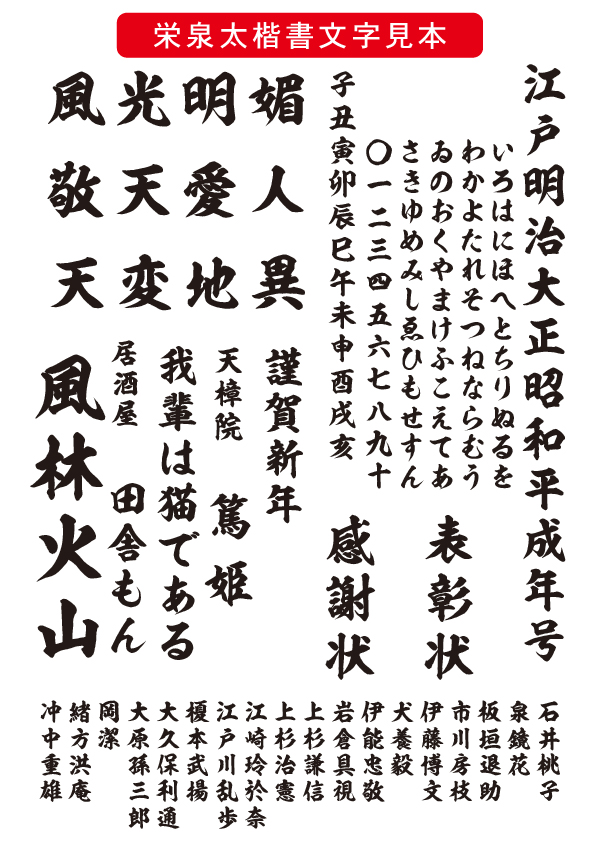 栄泉太楷書文字見本
江戸明治大正昭和平成年号
いろはにほへとちりぬるを
わかよたれそつねならむう
ゐのおくやまけふこえてあ
さきゆめみしゑひもせすん
〇一二三四五六七八九十
子丑寅卯辰巳午未申酉戌亥
表彰状
感謝状
媚人異
明愛地
光天変
風敬天
謹賀新年
天樟院 篤姫
我輩は猫である
居酒屋 田舎もん
風林火山
石井桃子
泉鏡花
板垣退助
市川房枝
伊藤博文
犬養毅
伊能忠敬
岩倉具視
上杉謙信
上杉治憲
江崎玲於奈
江戸川乱歩
榎本武揚
大久保利通
大原孫三郎
岡潔
緒方洪庵
冲中重雄